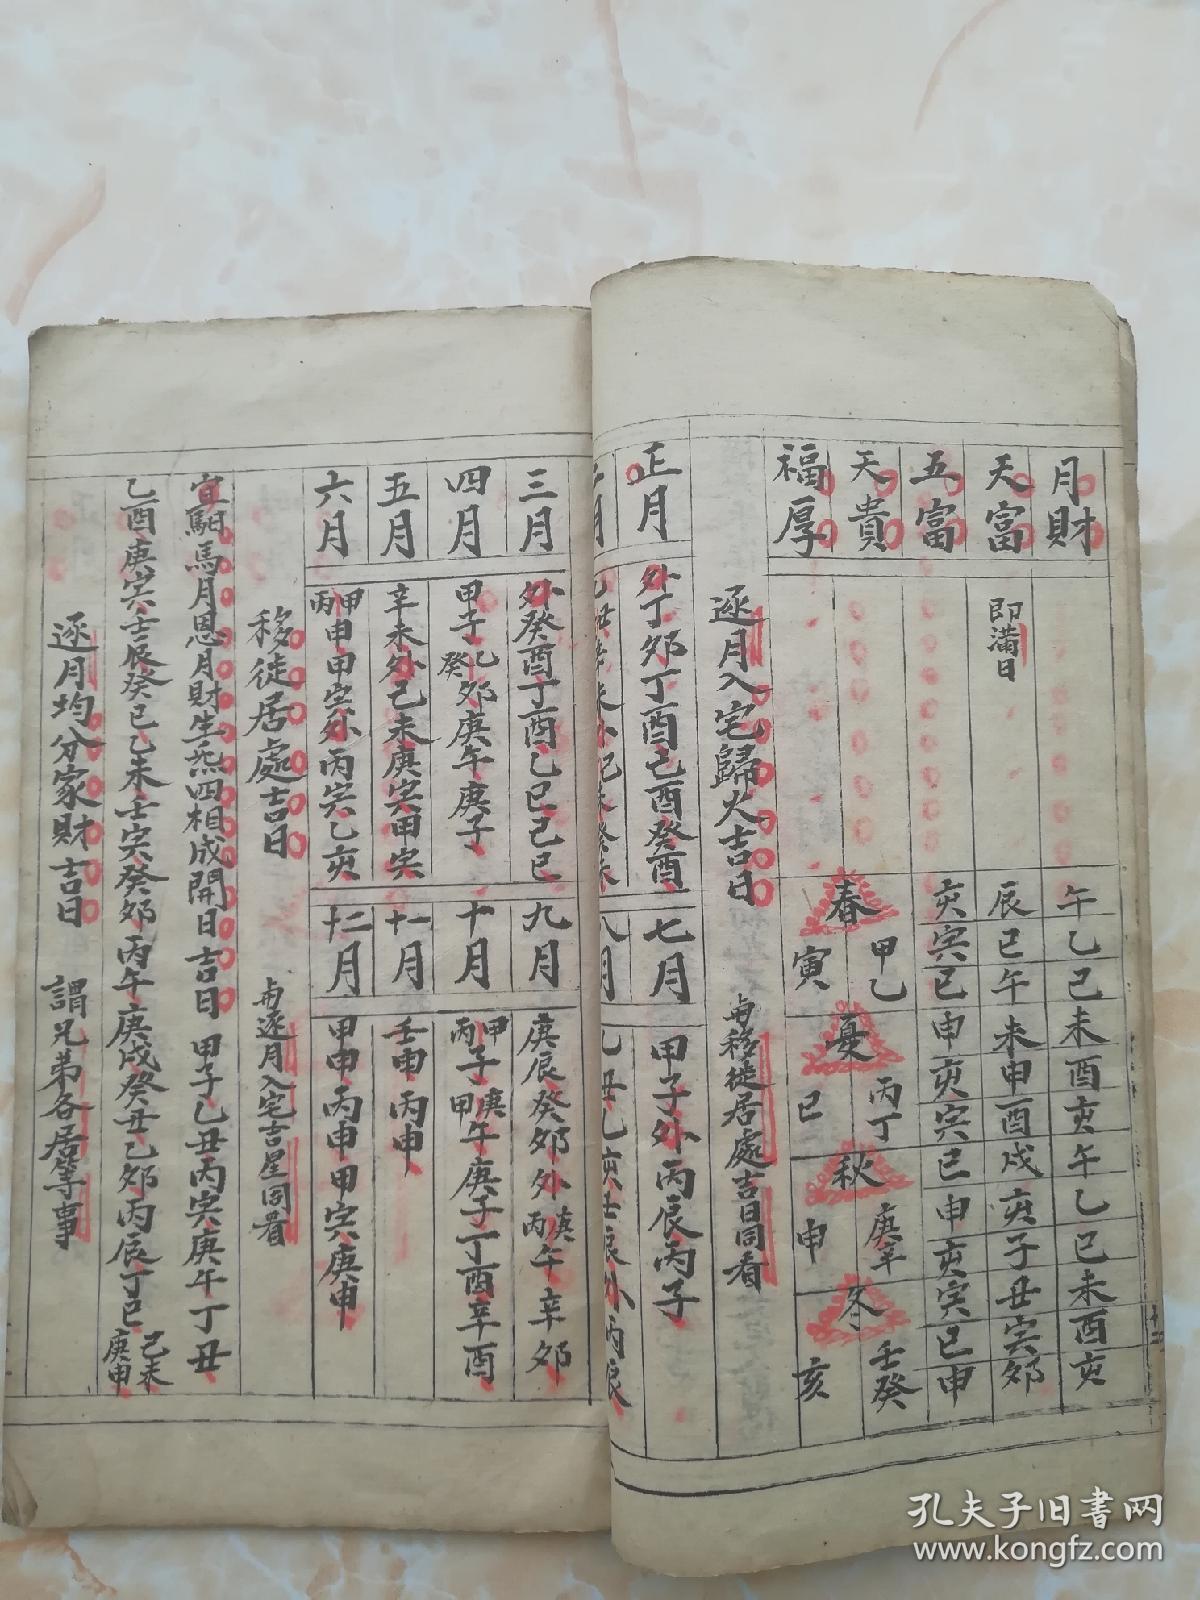 月財 午乙巳未酉亥午乙巳未酉亥
天富 即滿日 辰巳午未申酉戌亥子丑寅卯
五富 亥寅巳申亥寅巳申亥寅巳申
天貴 春 甲乙 夏 丙丁 秋 庚辛 冬 壬癸
福厚 寅 巳 申 亥
逐月入宅歸火吉日 與移徙居處吉日同看
正月 外丁卯丁酉己酉癸酉 七月 甲子外丙辰丙子
二月 八月
三月 外癸酉丁酉乙巳己巳 九月 庚辰癸卯外丙庚午辛卯
四月 甲子癸乙卯庚午庚子 十月 丙甲子甲庚午庚子丁酉辛酉
五月 辛未外己未庚寅甲寅 十一月 壬申丙申
六月 丙甲申甲寅外丙寅乙亥 十二月 甲申丙申甲寅庚申
移徙居處吉日 與逐月入宅吉星同看
宜馹馬月恩月財生炁四相成開日吉日 甲子乙丑丙寅庚午丁丑
乙酉庚寅壬辰癸巳乙未壬寅癸卯丙午庚戌癸丑乙卯丙辰丁巳己未庚申
逐月均分家財吉日 謂兄弟各居等事
孔夫子旧书网
www.kongfz.com